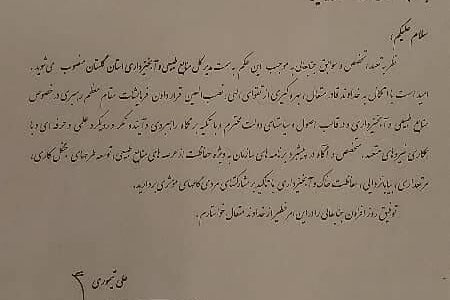 سلام علیکم؛
نظر به تعهد، تخصص و سوابق جنابعالی به موجب این حکم به سمت مدیر کل منابع طبیعی و آبخیزداری استان گلستان منصوب می‌شوید.
امید است با اتکال به خداوند قادر متعال، بهره‌گیری از تقوای الهی، نصب‌العین قرار دادن فرمایشات مقام معظم رهبری در خصوص
منابع طبیعی و آبخیزداری و در قالب اصول و سیاستهای دولت محترم و با تکیه بر نگاه راهبردی و آینده‌نگر و رویکرد علمی و حرفه‌ای و با
بکارگیری نیروهای متعهد، متخصص و کارآمد در پیشبرد برنامه‌های سازمان به ویژه حفاظت از عرصه‌های منابع طبیعی، توسعه طرحهای جنگل‌کاری،
مرتعداری، بیابانزدایی، حفاظت خاک و آبخیزداری با تاکید بر مشارکتهای مردمی گامهای موثری بردارید.
توفیق روز افزون جنابعالی را در این امر خطیر از خداوند متعال خواستارم.
علی تیموری